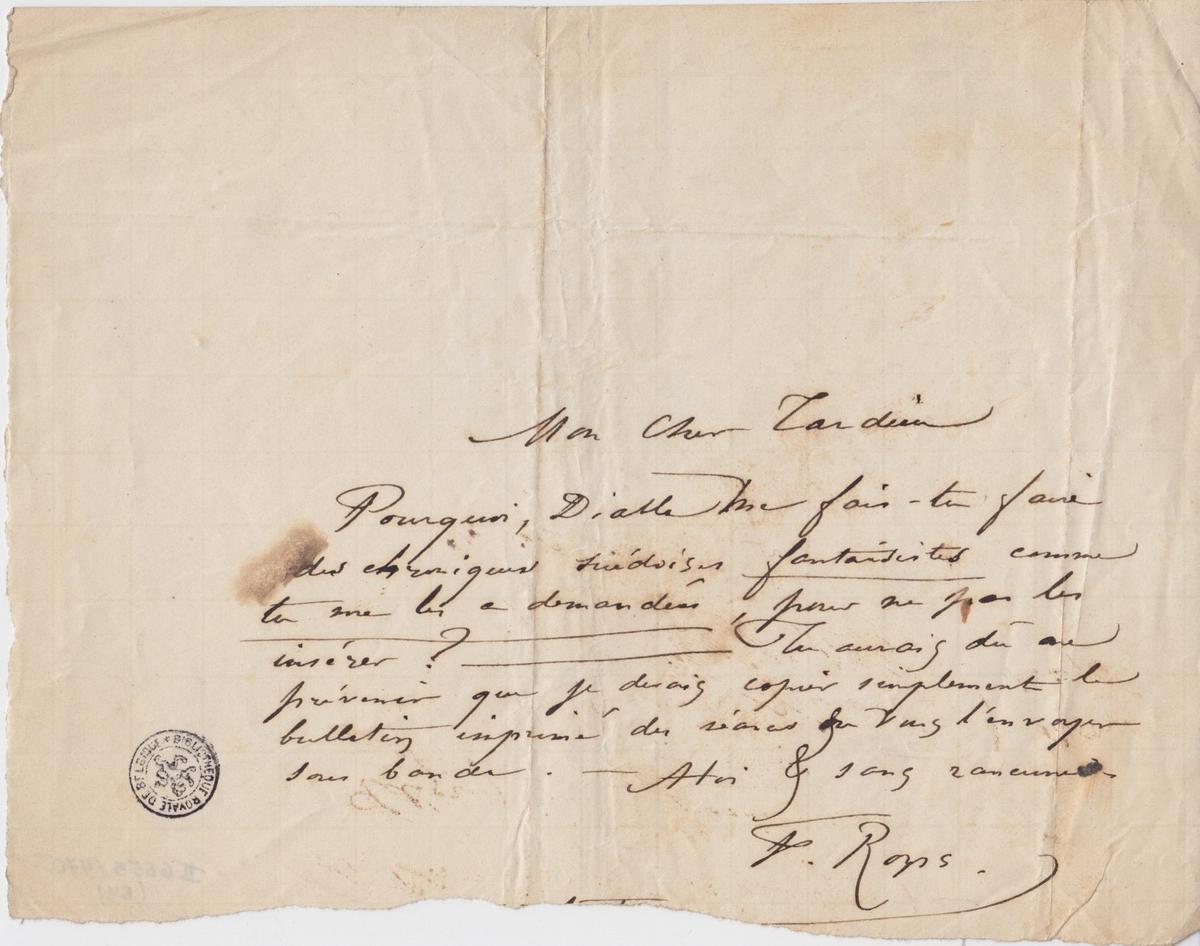 Mon Cher Tardieu
Pourquoi, Diable me fais-tu faire
des chroniques suédoises fantaisistes comme
tu me les a demandées, pour ne pas les
insérer ? Tu aurais dû me
prévenir que je devais copier simplement le
bulletin imprimé des séances & vous l'envoyer
sous bande. — A toi & sans rancune
F. Rops.
BIBLIOTHÈQUE ROYALE DE BELGIQUE